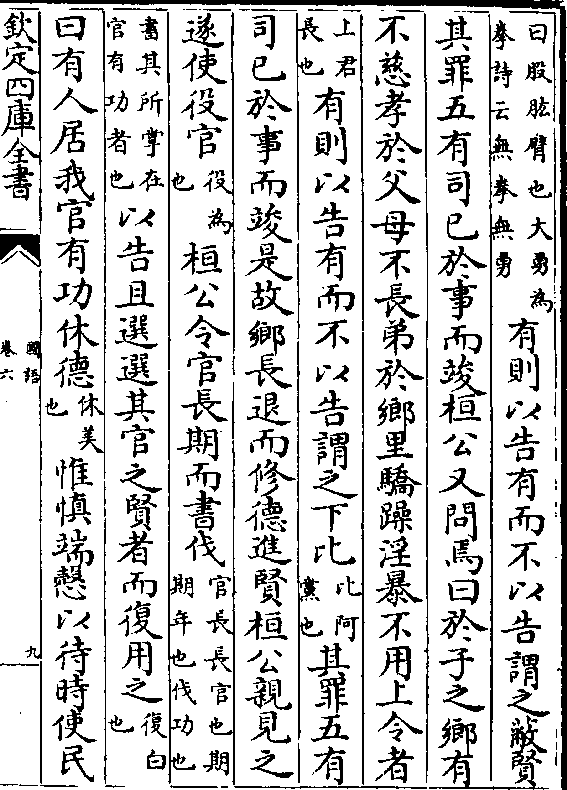 曰股肱臂也大勇為拳詩云無拳無勇有則以告有而不以告謂之蔽賢
其罪五有司已於事而竣桓公又問焉曰於子之鄉有
不慈孝於父母不長弟於鄉里驕躁淫暴不用上令者
上君長也有則以告有而不以告謂之下比比阿黨也其罪五有
司已於事而竣是故鄉長退而修德進賢桓公親見之
遂使役官役為也桓公令官長期而書伐官長長官也期期年也伐功也
書其所掌在官有功者也以告且選選其官之賢者而復用之復白也
曰有人居我官有功休德休美也惟慎端慤以待時使民
欽定四庫全書
國語
卷六
九